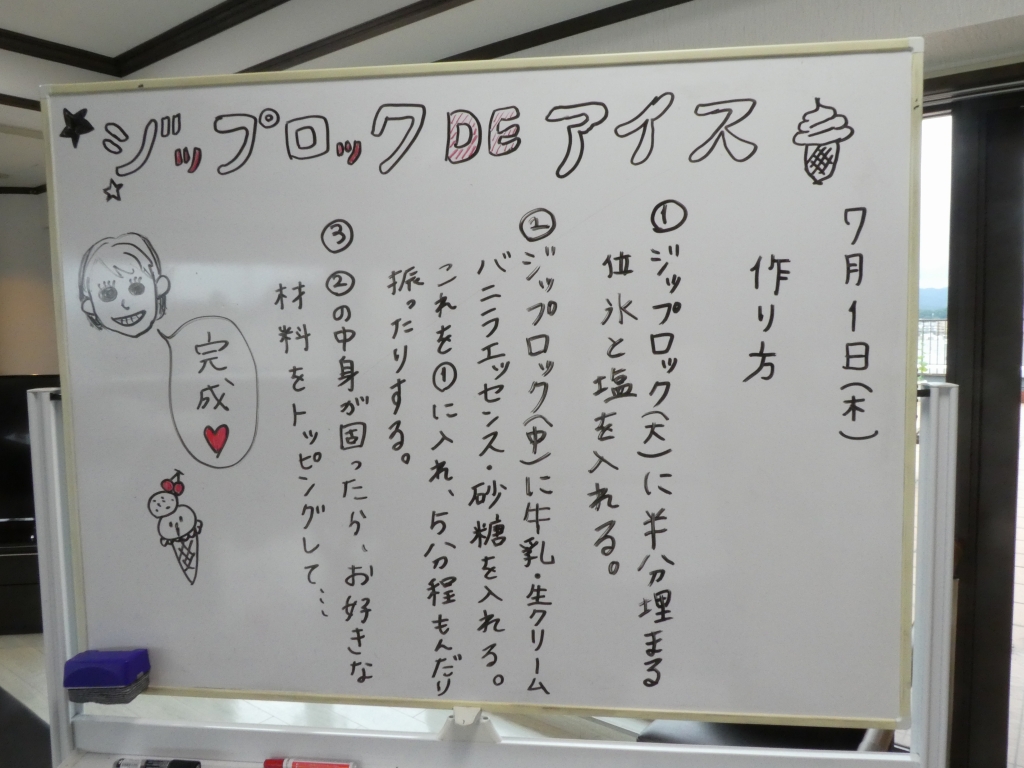 ジップロックDEアイス
7月1日(木)
作り方
① ジップロック(大)に半分埋まる
位氷と塩を入れる。
② ジップロック(中)に牛乳・生クリーム
バニラエッセンス・砂糖を入れる。
これを①に入れ、5分程もんだり
振ったりする。
③ ②の中身が固ったら、お好きな
材料をトッピングして…
完成